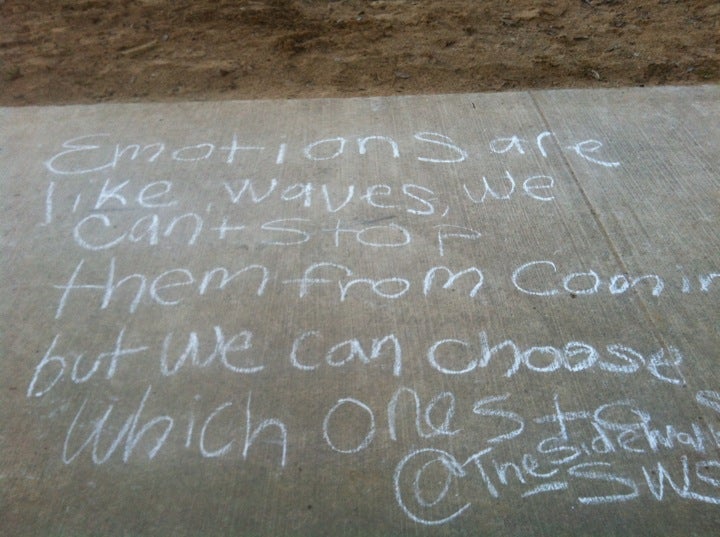 Emotions are
like waves, we
can't stop
them from comin
but we can choose
which ones
@The Sidewalk
-SWS